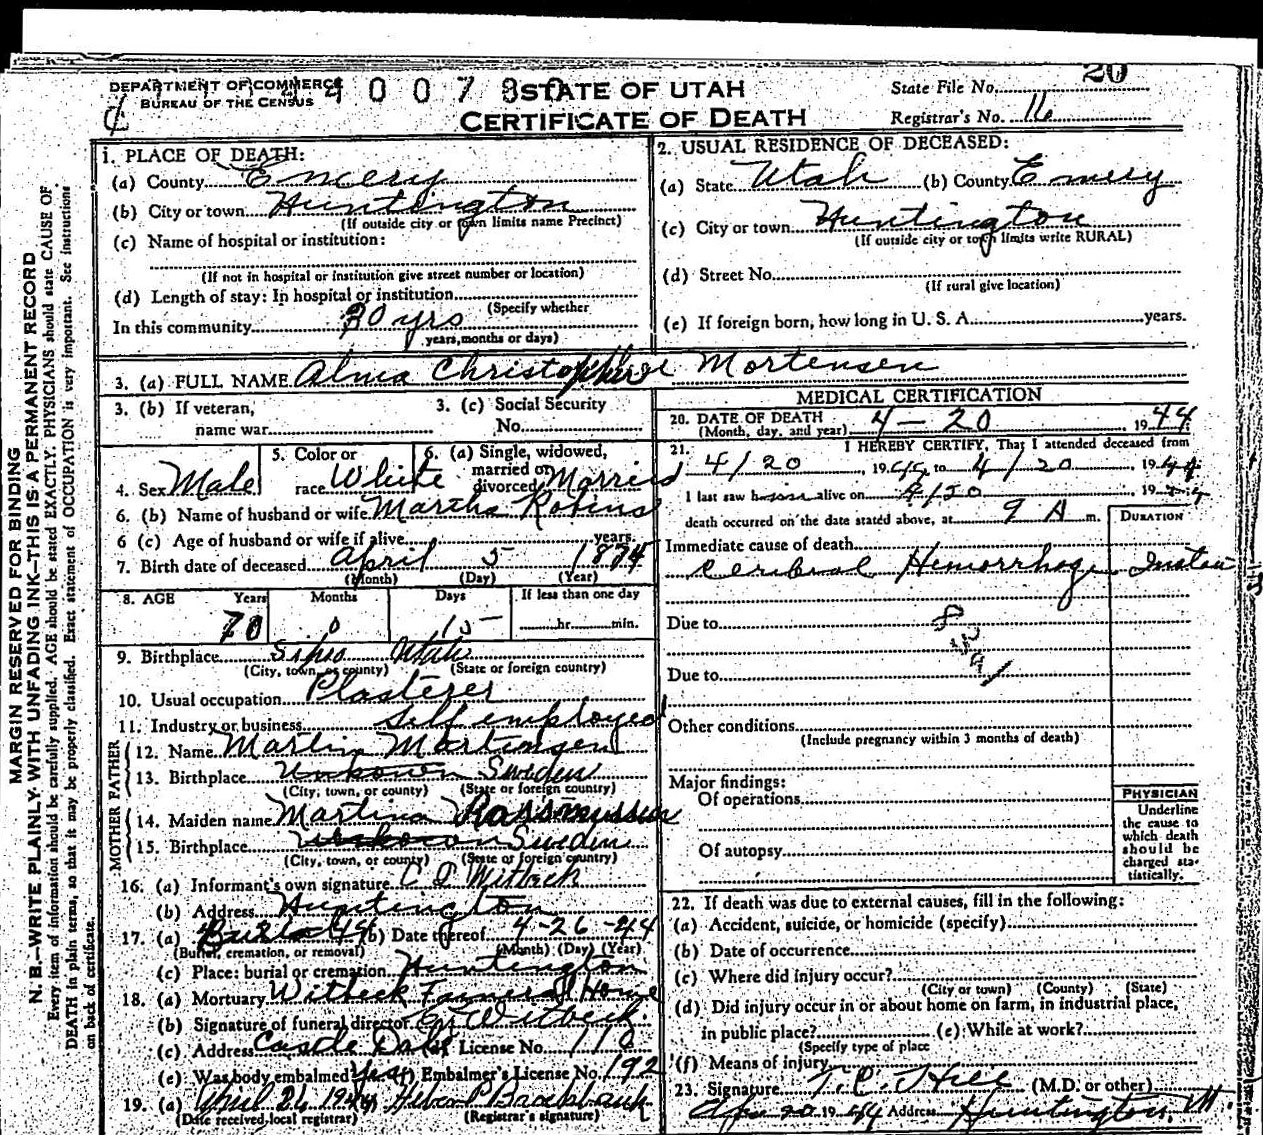 DEPARTMENT OF COMMERCE
BUREAU OF THE CENSUS
STATE OF UTAH
CERTIFICATE OF DEATH
State File No. 20
Registrar's No. 16
MARGIN RESERVED FOR BINDING
N. B.—WRITE PLAINLY WITH UNFADING INK—THIS IS A PERMANENT RECORD
Every item of information should be carefully supplied. AGE should be stated EXACTLY. PHYSICIANS should state CAUSE OF
DEATH in plain terms, so that it may be properly classified. Exact statement of OCCUPATION is very important. See instructions
on back of certificate.
1. PLACE OF DEATH:
(a) County Emery
(b) City or town Huntington
(If outside city or town limits name Precinct)
(c) Name of hospital or institution:
(If not in hospital or institution give street number or location)
(d) Length of stay: In hospital or institution
(Specify whether
In this community 30 yrs
years, months or days)
2. USUAL RESIDENCE OF DECEASED:
(a) State Utah (b) County Emery
(c) City or town Huntington
(If outside city or town limits write RURAL)
(d) Street No.
(If rural give location)
(e) If foreign born, how long in U. S. A. years.
3. (a) FULL NAME Alma Mortensen
3. (b) If veteran,
name war
3. (c) Social Security
No.
4. Sex Male
5. Color or
race White
6. (a) Single, widowed,
married or
divorced Married
6. (b) Name of husband or wife Martha Robins
6 (c) Age of husband or wife if alive years.
7. Birth date of deceased April 5 1874
(Month) (Day) (Year)
8. AGE Years Months Days If less than one day
70 0 15 hr. min.
9. Birthplace Sipio Utah
(City, town, or county) (State or foreign country)
10. Usual occupation Plasterer
11. Industry or business Self employed
FATHER
12. Name Martin Mortensen
13. Birthplace Unkown Sweden
(City, town, or county) (State or foreign country)
MOTHER
14. Maiden name Martina
15. Birthplace Unkown Sweden
(City, town, or county) (State or foreign country)
16. (a) Informant's own signature C Witbeck
(b) Address Huntington
17. (a) Burial (b) Date thereof 4-26-44
(Burial, cremation, or removal) (Month) (Day) (Year)
(c) Place: burial or cremation Huntington
18. (a) Mortuary Witbeck Funeral Home
(b) Signature of funeral director Witbeck
(c) Address Castle Dale License No. 110
(e) Was body embalmed yes (f) Embalmer's License No. 192
19. (a) April 26 1944
(Date received local registrar) (Registrar's signature)
MEDICAL CERTIFICATION
20. DATE OF DEATH
(Month, day, and year) 4-20 1944
21. I HEREBY CERTIFY, That I attended deceased from
4/20, 1944 to 4/20 1944
I last saw h alive on 4/20 1944
death occurred on the date stated above, at 9 A m.
DURATION
Immediate cause of death
Cerebral Hemorrhage
Due to
Due to
Other conditions
(Include pregnancy within 3 months of death)
Major findings:
Of operations
Of autopsy
PHYSICIAN
Underline
the cause to
which death
should be
charged sta-
tistically.
22. If death was due to external causes, fill in the following:
(a) Accident, suicide, or homicide (specify)
(b) Date of occurrence
(c) Where did injury occur?
(City or town) (County) (State)
(d) Did injury occur in or about home on farm, in industrial place,
in public place? (e) While at work?
(Specify type of place
(f) Means of injury
23. Signature T. C. Hill (M.D. or other)
1944 Address Huntington